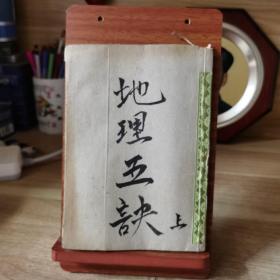 地理五訣
上